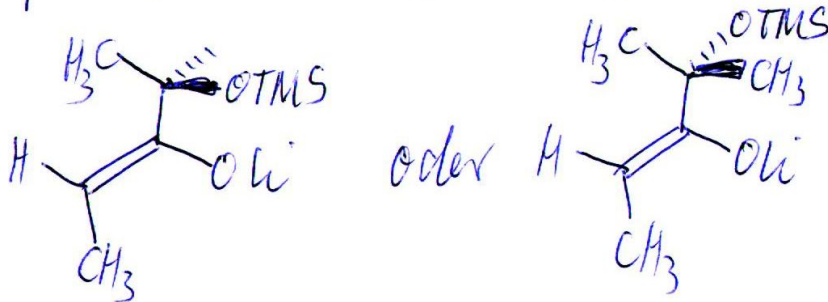 H₃C OTMS
H OLi
CH₃
oder
OTMS
H₃C CH₃
H OLi
CH₃